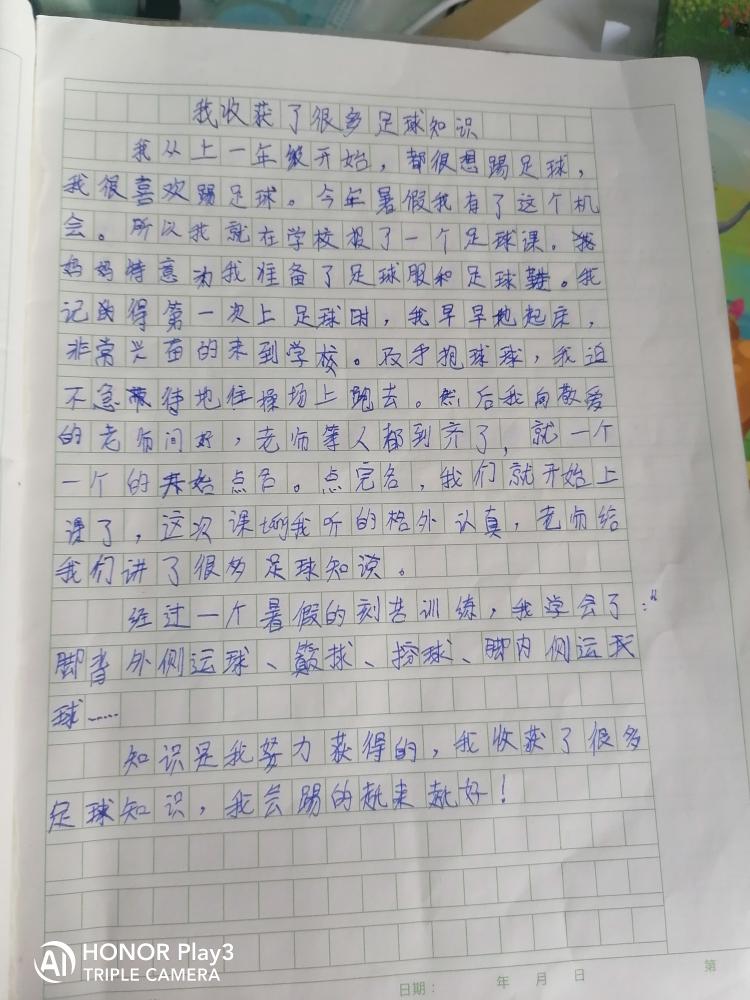 我收获了很多足球知识
我从上一年级开始，都很想踢足球，
我很喜欢踢足球。今年暑假我有了这个机
会。所以我就在学校报了一个足球课。我
妈妈特意为我准备了足球服和足球鞋。我
记的得第一次上足球时，我早早地起床，
非常兴奋的来到学校。双手抱球球，我迫
不急待地往操场上跑去。然后我向敬爱
的老师问好，老师等人都到齐了，就一个
一个的开始点名。点完名，我们就开始上
课了，这次课我听的格外认真，老师给
我们讲了很多足球知识。
经过一个暑假的刻苦训练，我学会了：“
脚背外侧运球、颠球、捞球、脚内侧运
球……
知识是我努力获得的，我收获了很多
足球知识，我会踢的越来越好！
HONOR Play3
TRIPLE CAMERA
日期： 年 月 日
第